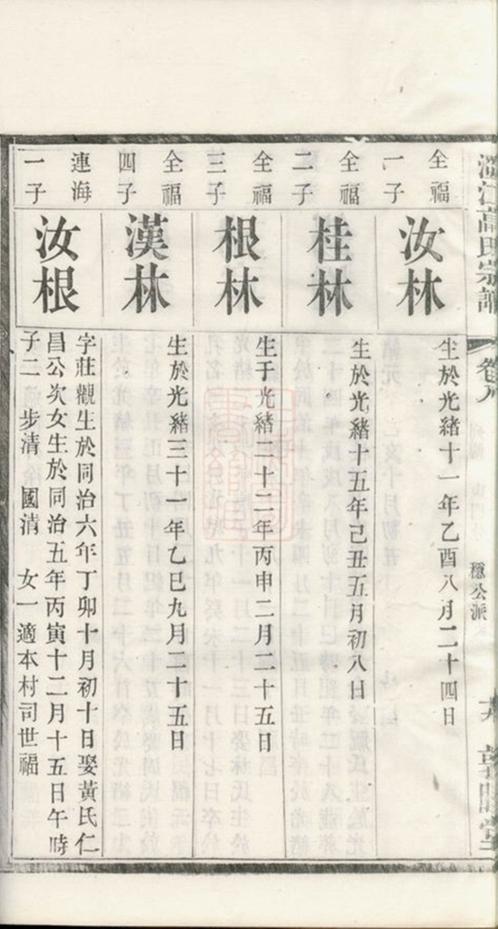 高氏宗譜
卷
穩公派
全福一子
汝林
生於光緒十一年乙酉八月二十四日
全福二子
桂林
生於光緒十五年己丑五月初八日
全福三子
根林
生于光緒二十二年丙申二月二十五日
全福四子
漢林
生於光緒三十一年乙巳九月二十五日
連海一子
汝根
字莊觀生於同治六年丁卯十月初十日娶黃氏仁
昌公次女生於同治五年丙寅十二月十五日午時
子二 步清 國清 女一適本村司世福